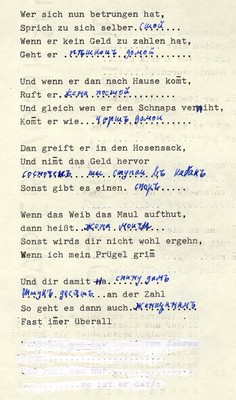 Wer sich nun betrungen hat,
Sprich zu sich selber. стой....
Wenn er kein Geld zu zahlen hat,
Geht er пѣшкомъ домой
Und wenn er dan nach Hause kom̄t,
Ruft er. жена постой
Und gleich wen er den Schnaps verniht,
Kom̄t er wie... чортъ домой
Dan greift er in den Hosensack,
Und nim̄t das Geld hervor
ступай въ кабакъ
Sonst gibt es einen. споръ.....
Wenn das Weib das Maul aufthut,
dann heißt. жена молчи...
Sonst wirds dir nicht wohl ergehn,
Wenn ich mein Prügel grim̄
Und dir damit на спину дамъ
Штукъ десять ..an der Zahl
So geht es dann auch. женщинамъ
Fast im̄er überall